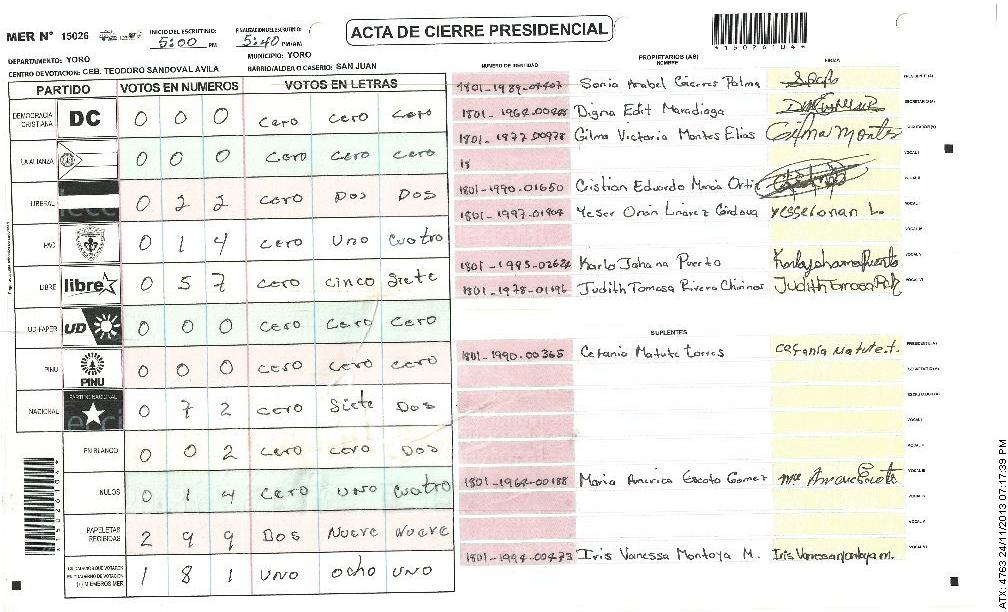 MER N° 15026
INICIO DEL ESCRUTINIO:
5:00 PM
FINALIZACION ESCRUTINIO:
5:40 PM/AM
ACTA DE CIERRE PRESIDENCIAL
4150261044
DEPARTAMENTO: YORO
MUNICIPIO: YORO
CENTRO DE VOTACION: CEB. TEODORO SANDOVAL AVILA
BARRIO/ALDEA O CASERIO: SAN JUAN
PARTIDO VOTOS EN NUMEROS VOTOS EN LETRAS
DEMOCRACIA CRISTIANA DC 0 0 0 cero cero cero
LA ALIANZA 0 0 0 cero cero cero
LIBERAL 0 2 2 cero Dos Dos
PAC 0 1 4 cero Uno Cuatro
LIBRE libre 0 5 7 cero cinco siete
UD-FAPER UD 0 0 0 cero cero cero
PINU PINU 0 0 0 cero cero cero
NACIONAL PARTIDO NACIONAL 0 7 2 cero Siete Dos
EN BLANCO 0 0 2 cero cero Dos
NULOS 0 1 4 cero UNO cuatro
PAPELETAS RECIBIDAS 2 9 9 Dos Nueve Nueve
CIUDADANOS QUE VOTARON EN CUADERNO DE VOTACION (+) MIEMBROS MER 1 8 1 UNO ocho UNO
NUMERO DE IDENTIDAD
PROPIETARIOS (AS)
NOMBRE
FIRMA
Sonia Anabel Cáceres Palma PRESIDENTE(A)
Digna Edit Maradiaga SECRETARIO(A)
1801-1977-00978 Gilma Victoria Montes Elias Gilma Montes ESCRUTADOR(A)
18 VOCAL I
1801-1990-01650 Cristian Eduardo Murcia Ortiz VOCAL II
1801-1997-01904 Yeser Onán Linarez Córdova
1801-1995-02624 Karla Johana Puerto Karlajohanapuerto VOCAL V
1801-1978-01196 Judith Tomasa Rivera Chirinos VOCAL VI
SUPLENTES
1801-1990-00365 Cefania Matute torres cefania Matute t. PRESIDENTE(A)
SECRETARIO(A)
ESCRUTADOR(A)
VOCAL I
VOCAL II
1801-1964-00188 Maria America Escoto Gomez VOCAL III
VOCAL IV
VOCAL V
1801-1994-00473 Iris Vanessa Montoya M. Iris Vanessa montoya m. VOCAL VI
ATX: 4763 24/11/2013 07:17:39 PM